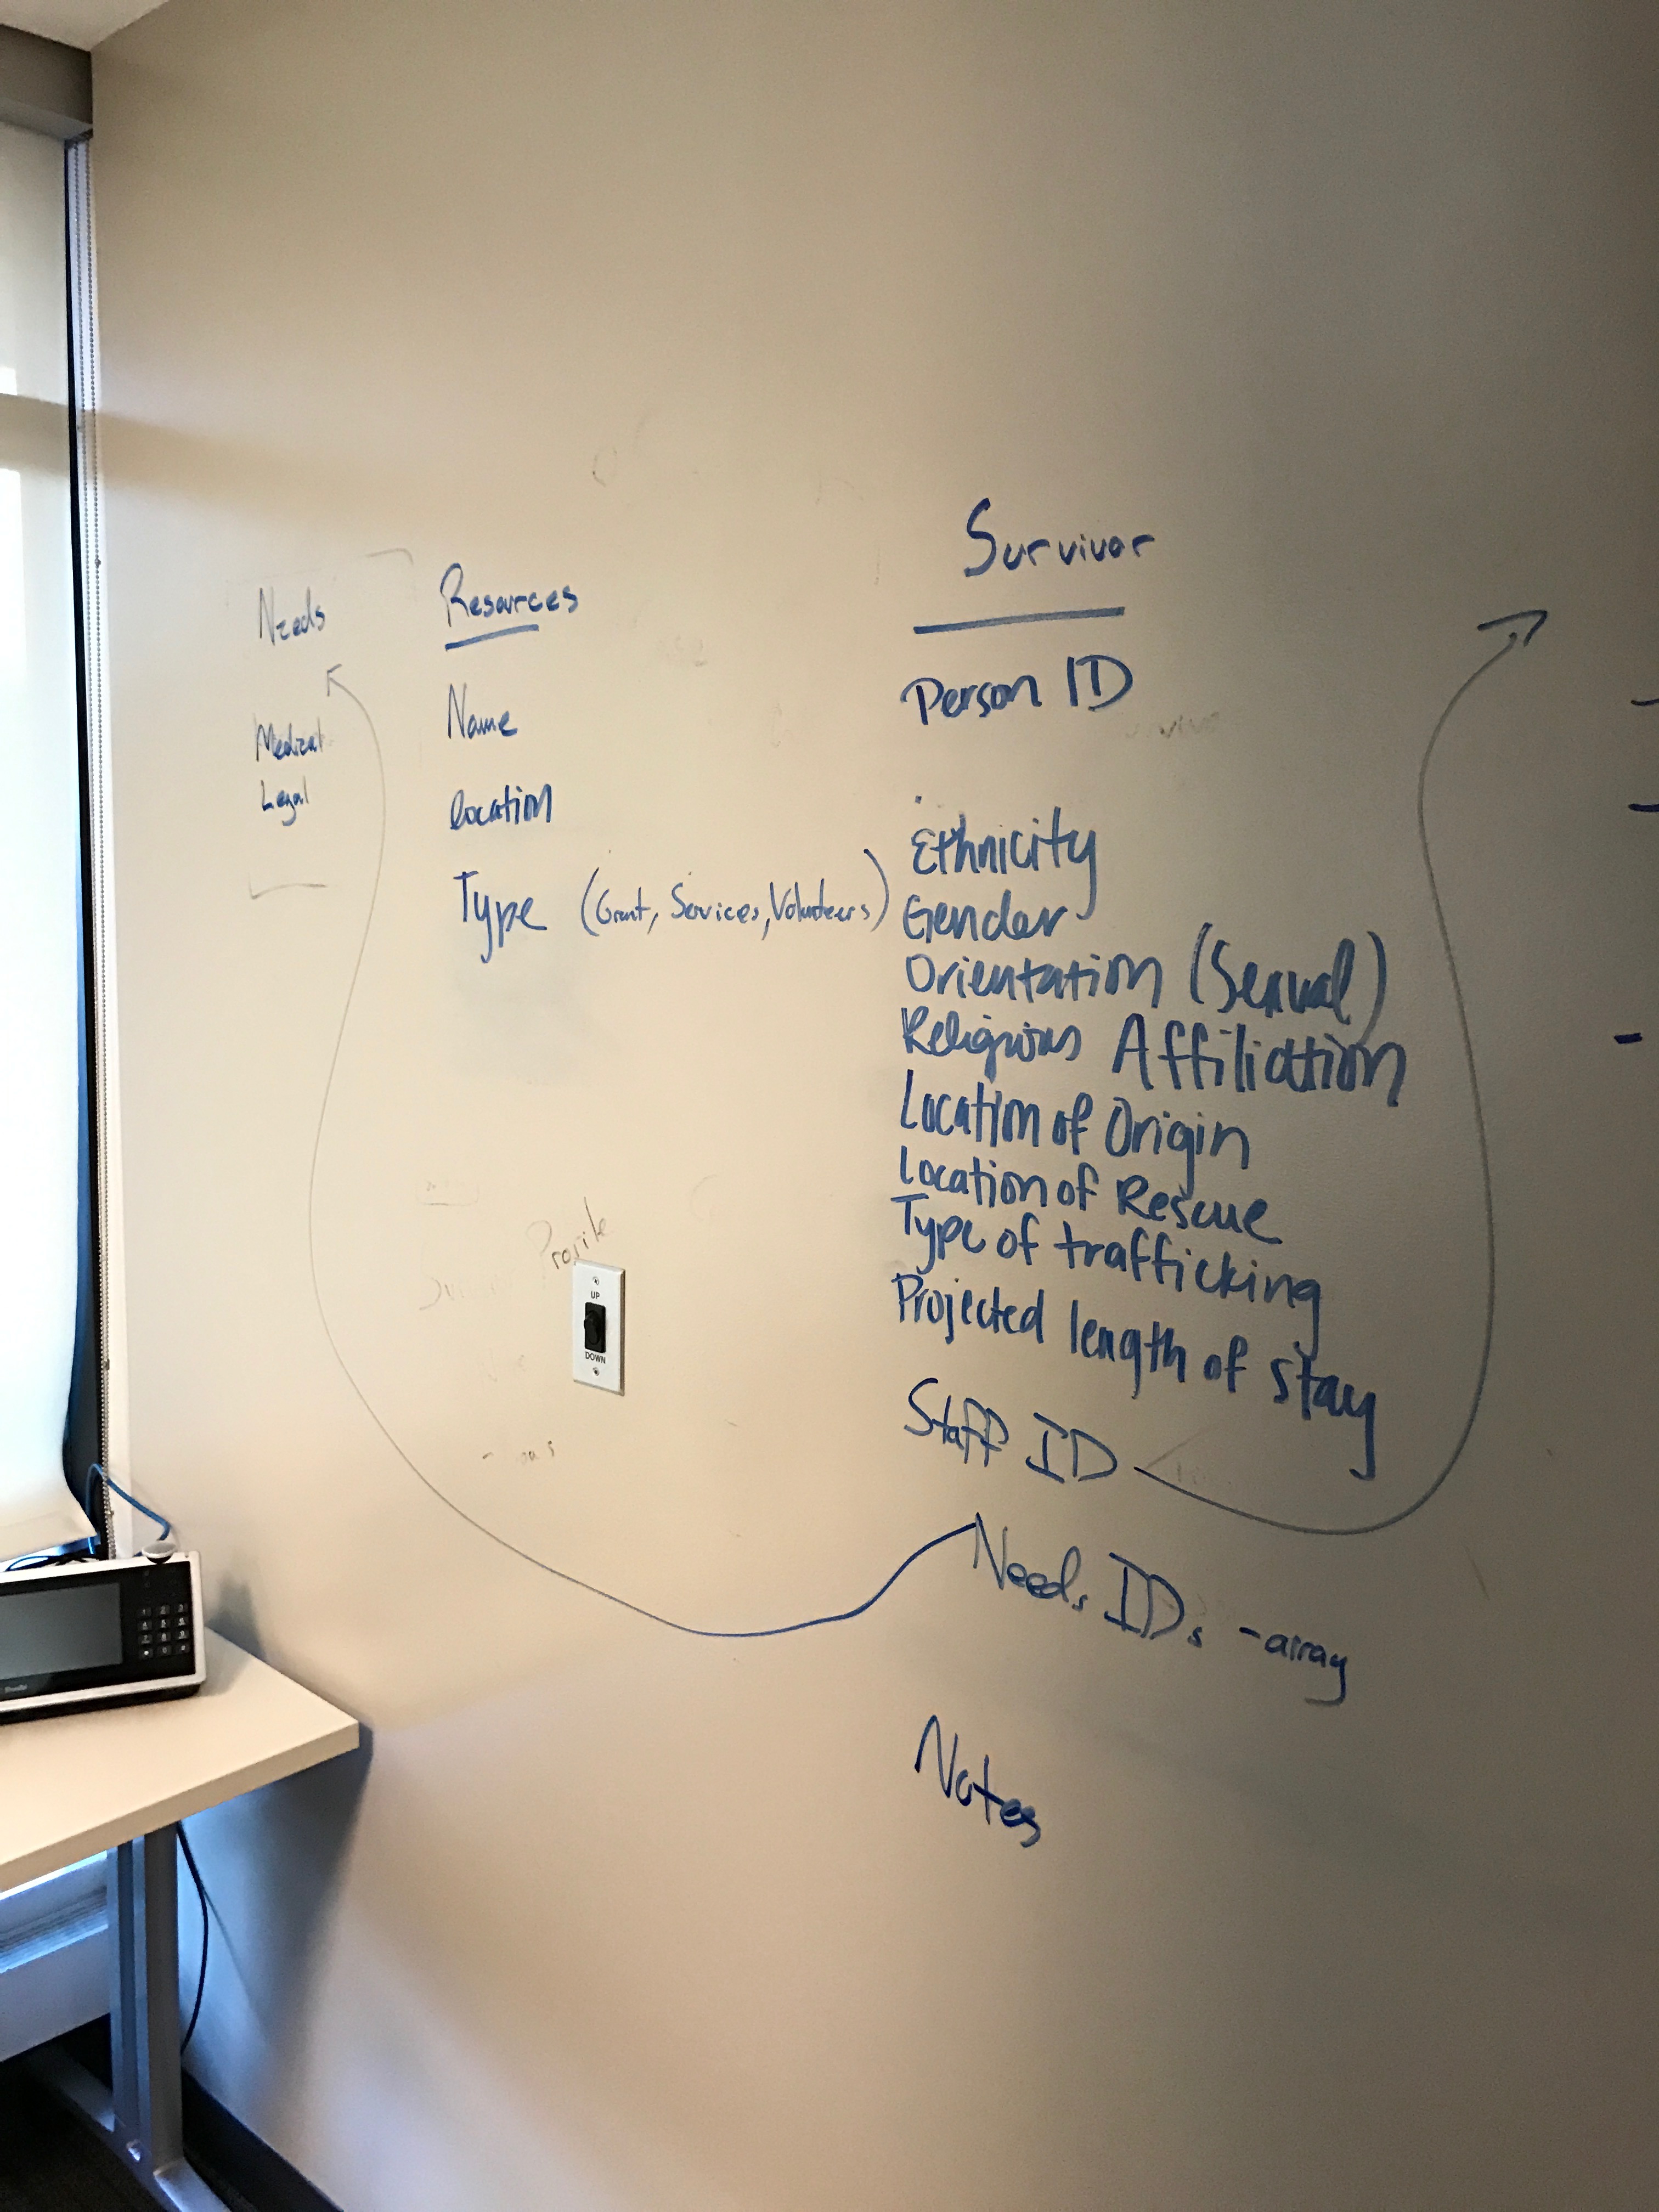 Needs
Medical
Legal
Resources
Name
location
Type (Grant, Services, Volunteers)
Survivor
Person ID
Ethnicity
Gender
Orientation (Sexual)
Religious Affiliation
Location of Origin
Location of Rescue
Type of trafficking
Projected length of stay
Staff ID
Needs IDs - array
Notes
Profile
UP
DOWN